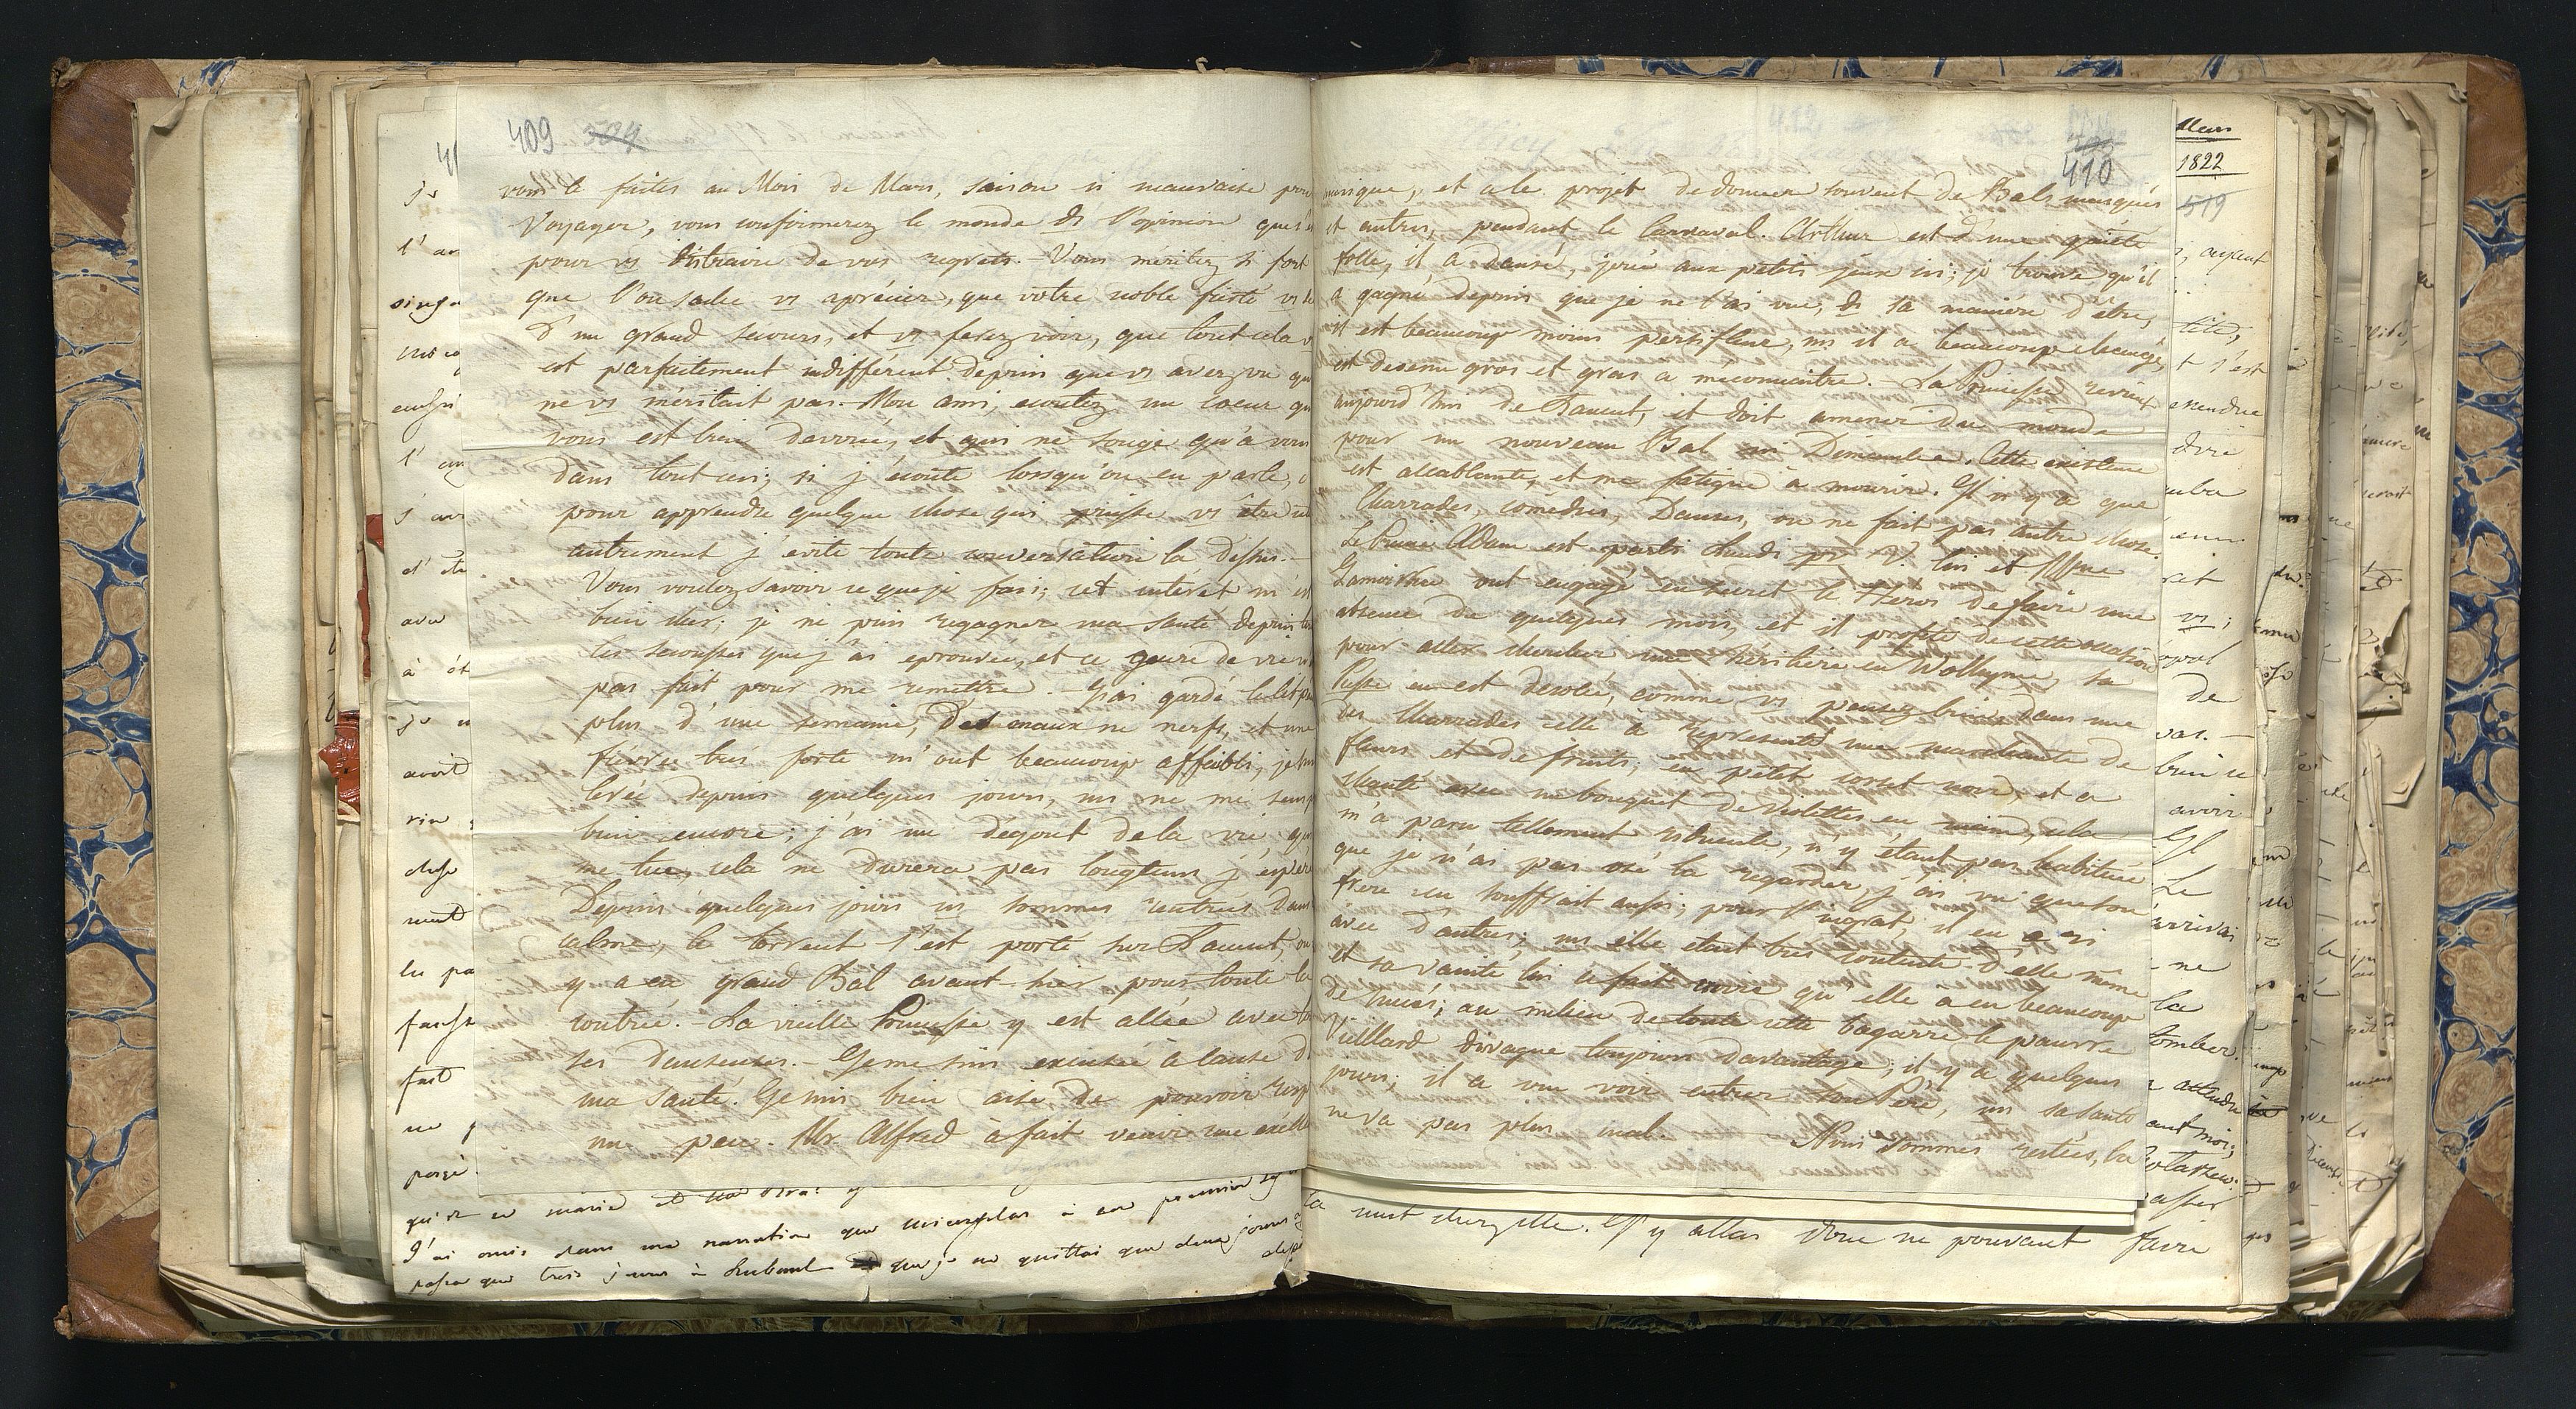 409 504
vous le faites au Mois de Mars, saison si mauvaise pour
Voyager, vous confirmerez le monde ds l'opinion que c'
pour vs distraire de vos regrets. - Vous méritez si fort
que l'on sache vs aprécier, que votre noble fierté vs
d'un grand secours, et vs ferez voir, que tout cela v
est parfaitement indifférent depuis que vs avez vu qu
ne vs méritait pas. Mon ami, ecoutez un coeur qu
vous est bien devoué, et qui ne songe qu'à vous
dans tout ceci; si j'écoute lorsqu'on en parle, c
pour apprendre quelque chose qui puisse vs être
autrement j'evite toute conversation la dessus. -
Vous voulez savoir ce que je fais; cet intérêt m'est
bien cher; je ne puis regagner ma santé depuis
les secousses que j'ai eprouvées, et ce genre de vie n
pas fait pour me remettre. - J'ai gardé le lit p
plus d'une semaine, des maux ne nerfs, et une
fièvre très forte m'ont beaucoup affaibli, je
levée depuis quelques jours, ms ne me sens
bien encore; j'ai un dégout de la vie, qui
me tue, cela ne durera pas longtems j'espere
Depuis quelques jours ns sommes rentrés dans
calme, le torrent s'est porté sur Lancut, ou
y a eu grand Bal avant-hier pour toute la
contrée. - La vieille Princesse y est allée avec
ses danseuses. - Je me suis excusée à cause d
ma santé. Je suis bien aise de pouvoir resp
un peu. Mr. Alfred a fait venir une exelle
410
musique, et a le projet de donner souvent de Bals masqués
et autres, pendant le Carnaval. Arthur est d'une gaieté
folle, il a dansé, joué aux petits jeux ici; je trouve qu'il
a gagné depuis que je ne l'ai vue, ds sa manière d'être,
il est beaucoup moins persifleur, ms il a beaucoup changé,
est devenu gros et gras a méconnaitre. - La Princesse revient
aujourd'hui de Lancut, et doit amener du monde
pour un nouveau Bal ici Dimanche. Cette existence
est accablante, et me fatigue à mourir. Il n'y a que
Charrades, comédies, Danses, on ne fait pas autre chose.
Le Prince Adam est parti Lundi pr V. lui et Mme
Zamoiska ont engagé en secret le Heros de faire une
absence de quelques mois, et il profite de cette occasion
pour aller chercher une héritière en Wolhynie, la
Pcsse en est desolée, comme vs pensez bien. dans une
des Charrades elle a representé une marchande de
fleurs et de fruits, en petit corset noir, et a
chanté avec un bouquet de violettes en main, cela
m'a paru tellement ridicule, n'y étant pas habituée
que je n'ai pas osé la regarder, j'ai vu que son
frere en souffrait aussi; pour l'ingrat, il en a ri
avec d'autres; ms elle etait très contente d'elle même
et sa vanité lui a fait croire qu'elle a eu beaucoup
de succès; au milieu de toute cette bagarre le pauvre
Vieillard divague toujours davantage; il y a quelques
jours, il a vu voir entrer son Père, ms sa santé
ne va pas plus mal. - Nous sommes restées, la
Mars
1822
519
, ayant
tête,
t s'est
vs;
de
bien ce
avoir
Il
Le
arrivai
ne
la
tomber.
attendre
ant moi;
qui se marie et
J'ai omis dans ma narration que
passa que trois jours à que je ne quittai que deux jours
la nuit chez elle. J'y allai donc ne pouvant faire